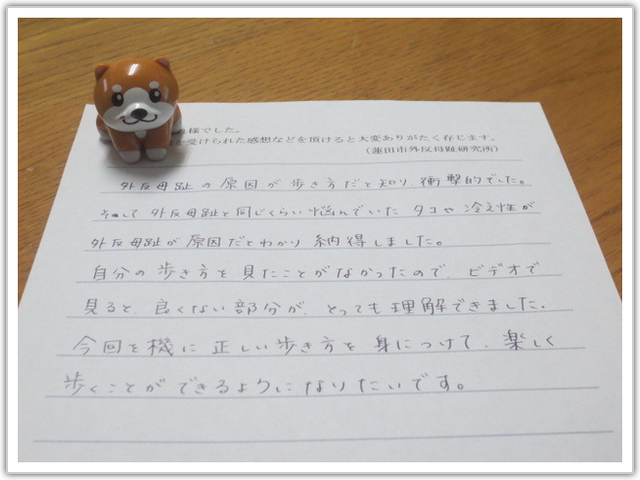 様でした。
を受けられた感想などを頂けると大変ありがたく存じます。
(蓮田市外反母趾研究所)
外反母趾の原因が歩き方だと知り、衝撃的でした。
そして外反母趾と同じくらい悩んでいたタコや冷え性が
外反母趾が原因だとわかり納得しました。
自分の歩き方を見たことがなかったので、ビデオで
見ると、良くない部分が、とっても理解できました。
今回を機に正しい歩き方を身につけて、楽しく
歩くことができるようになりたいです。